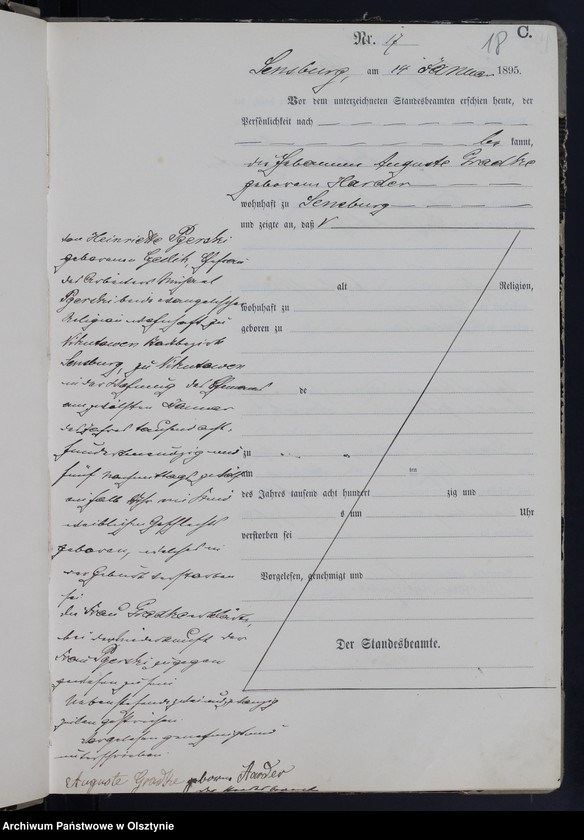 C.
Nr. 17
18
Sensburg, am 14 Januar 1895.
Vor dem unterzeichneten Standesbeamten erschien heute, der
Persönlichkeit nach
be kannt,
die Hebamme Auguste Gradtke
geborene Harder
wohnhaft zu Sensburg
und zeigte an, daß
von Heinriette
geborenen Ehefrau
des Arbeiters Michael
beide evangelischer
Religion wohnhaft zu
Sensburg, zu
in der Wohnung des Ehemanns
am zwölften Januar
des Jahres tausend acht
hundert neunzig und
fünf Nachmittags
einhalb Uhr ein Kind
weiblichen Geschlechts
geboren, welches in
der Geburt verstorben
sei
die Frau Gradtke erklärte,
bei der Niederkunft der
Frau zugegen
gewesen zu sein
Zeilen gestrichen.
Vorgelesen genehmigt und
unterschrieben.
Auguste Gradtke geborne Harder
alt Religion,
wohnhaft zu
geboren zu
de
zu
am um
des Jahres tausend acht hundert zig und
s um Uhr
verstorben sei
Vorgelesen, genehmigt und
Der Standesbeamte.
Archiwum Państwowe w Olsztynie